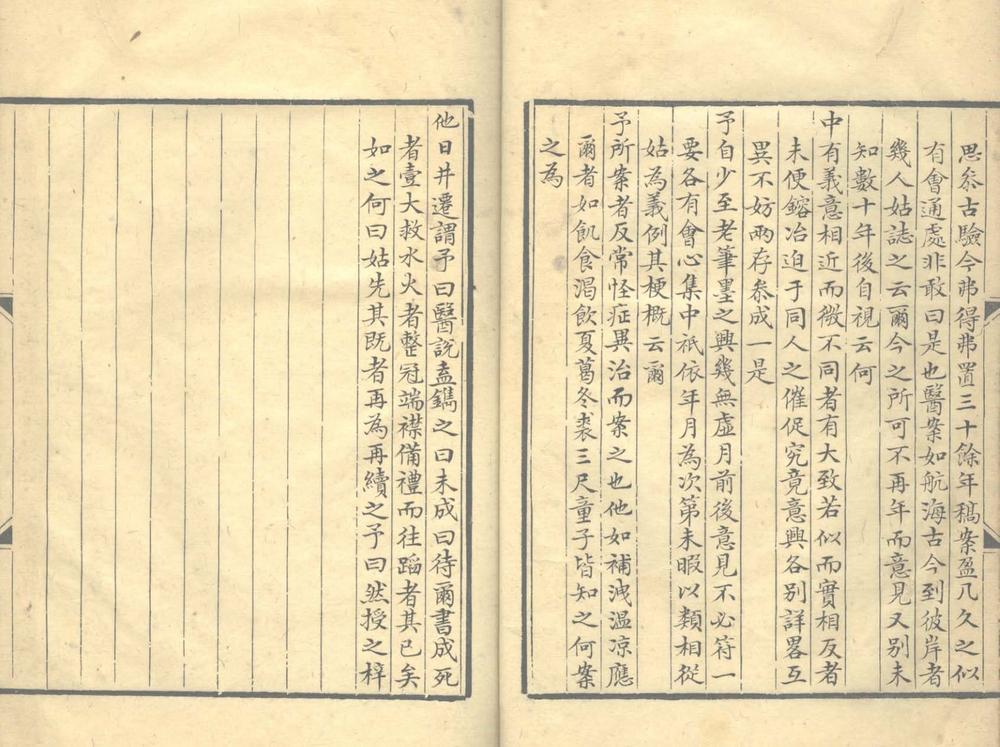 思叅古驗今弗得弗置三十餘年稿案盈几久之似
有會通處非敢曰是也醫案如航海古今到彼岸者
幾人姑誌之云爾今之所可不再年而意見又別未
知數十年後自視云何
中有義意相近而微不同者有大致若似而實相反者
未便鎔冶迫于同人之催促究竟意興各別詳畧互
異不妨兩存叅成一是
予自少至老筆墨之興幾無虛月前後意見不必符一
要各有會心集中祇依年月為次第未暇以類相從
姑為義例其梗概云爾
予所案者反常怪症異治而案之也他如補洩溫凉應
爾者如飢食渴飲夏葛冬裘三尺童子皆知之何案
之為
他日井遷謂予曰醫説盍鐫之曰未成曰待爾書成死
者壹大救水火者整冠端襟備禮而往蹈者其已矣
如之何曰姑先其既者再為再續之予曰然授之梓